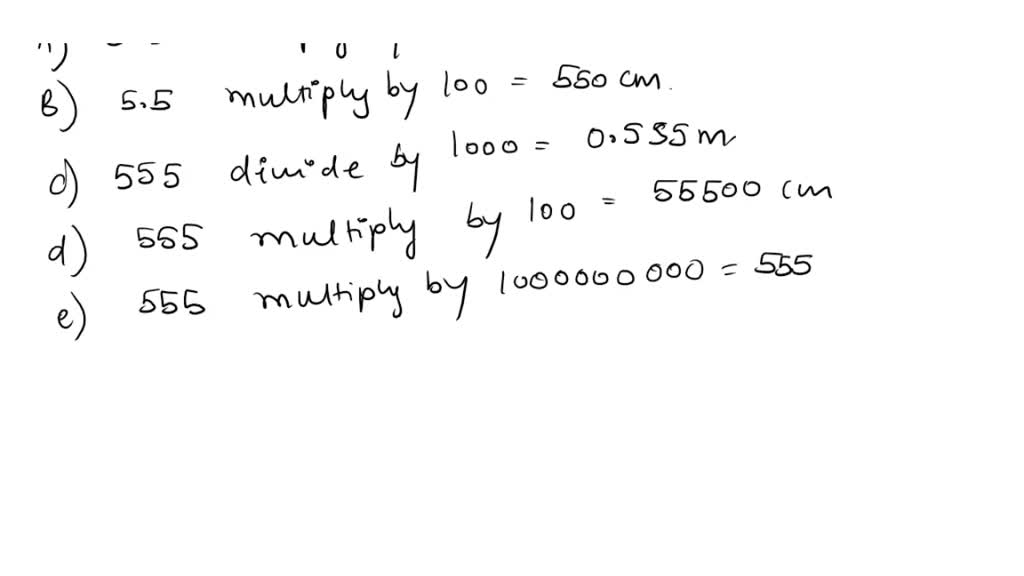 B) 5.5 multiply by 100 = 550 cm.
c) 555 divide by 1000 = 0.555 m
d) 555 multiply by 100 = 55500 cm
e) 555 multiply by 1000000000 = 555